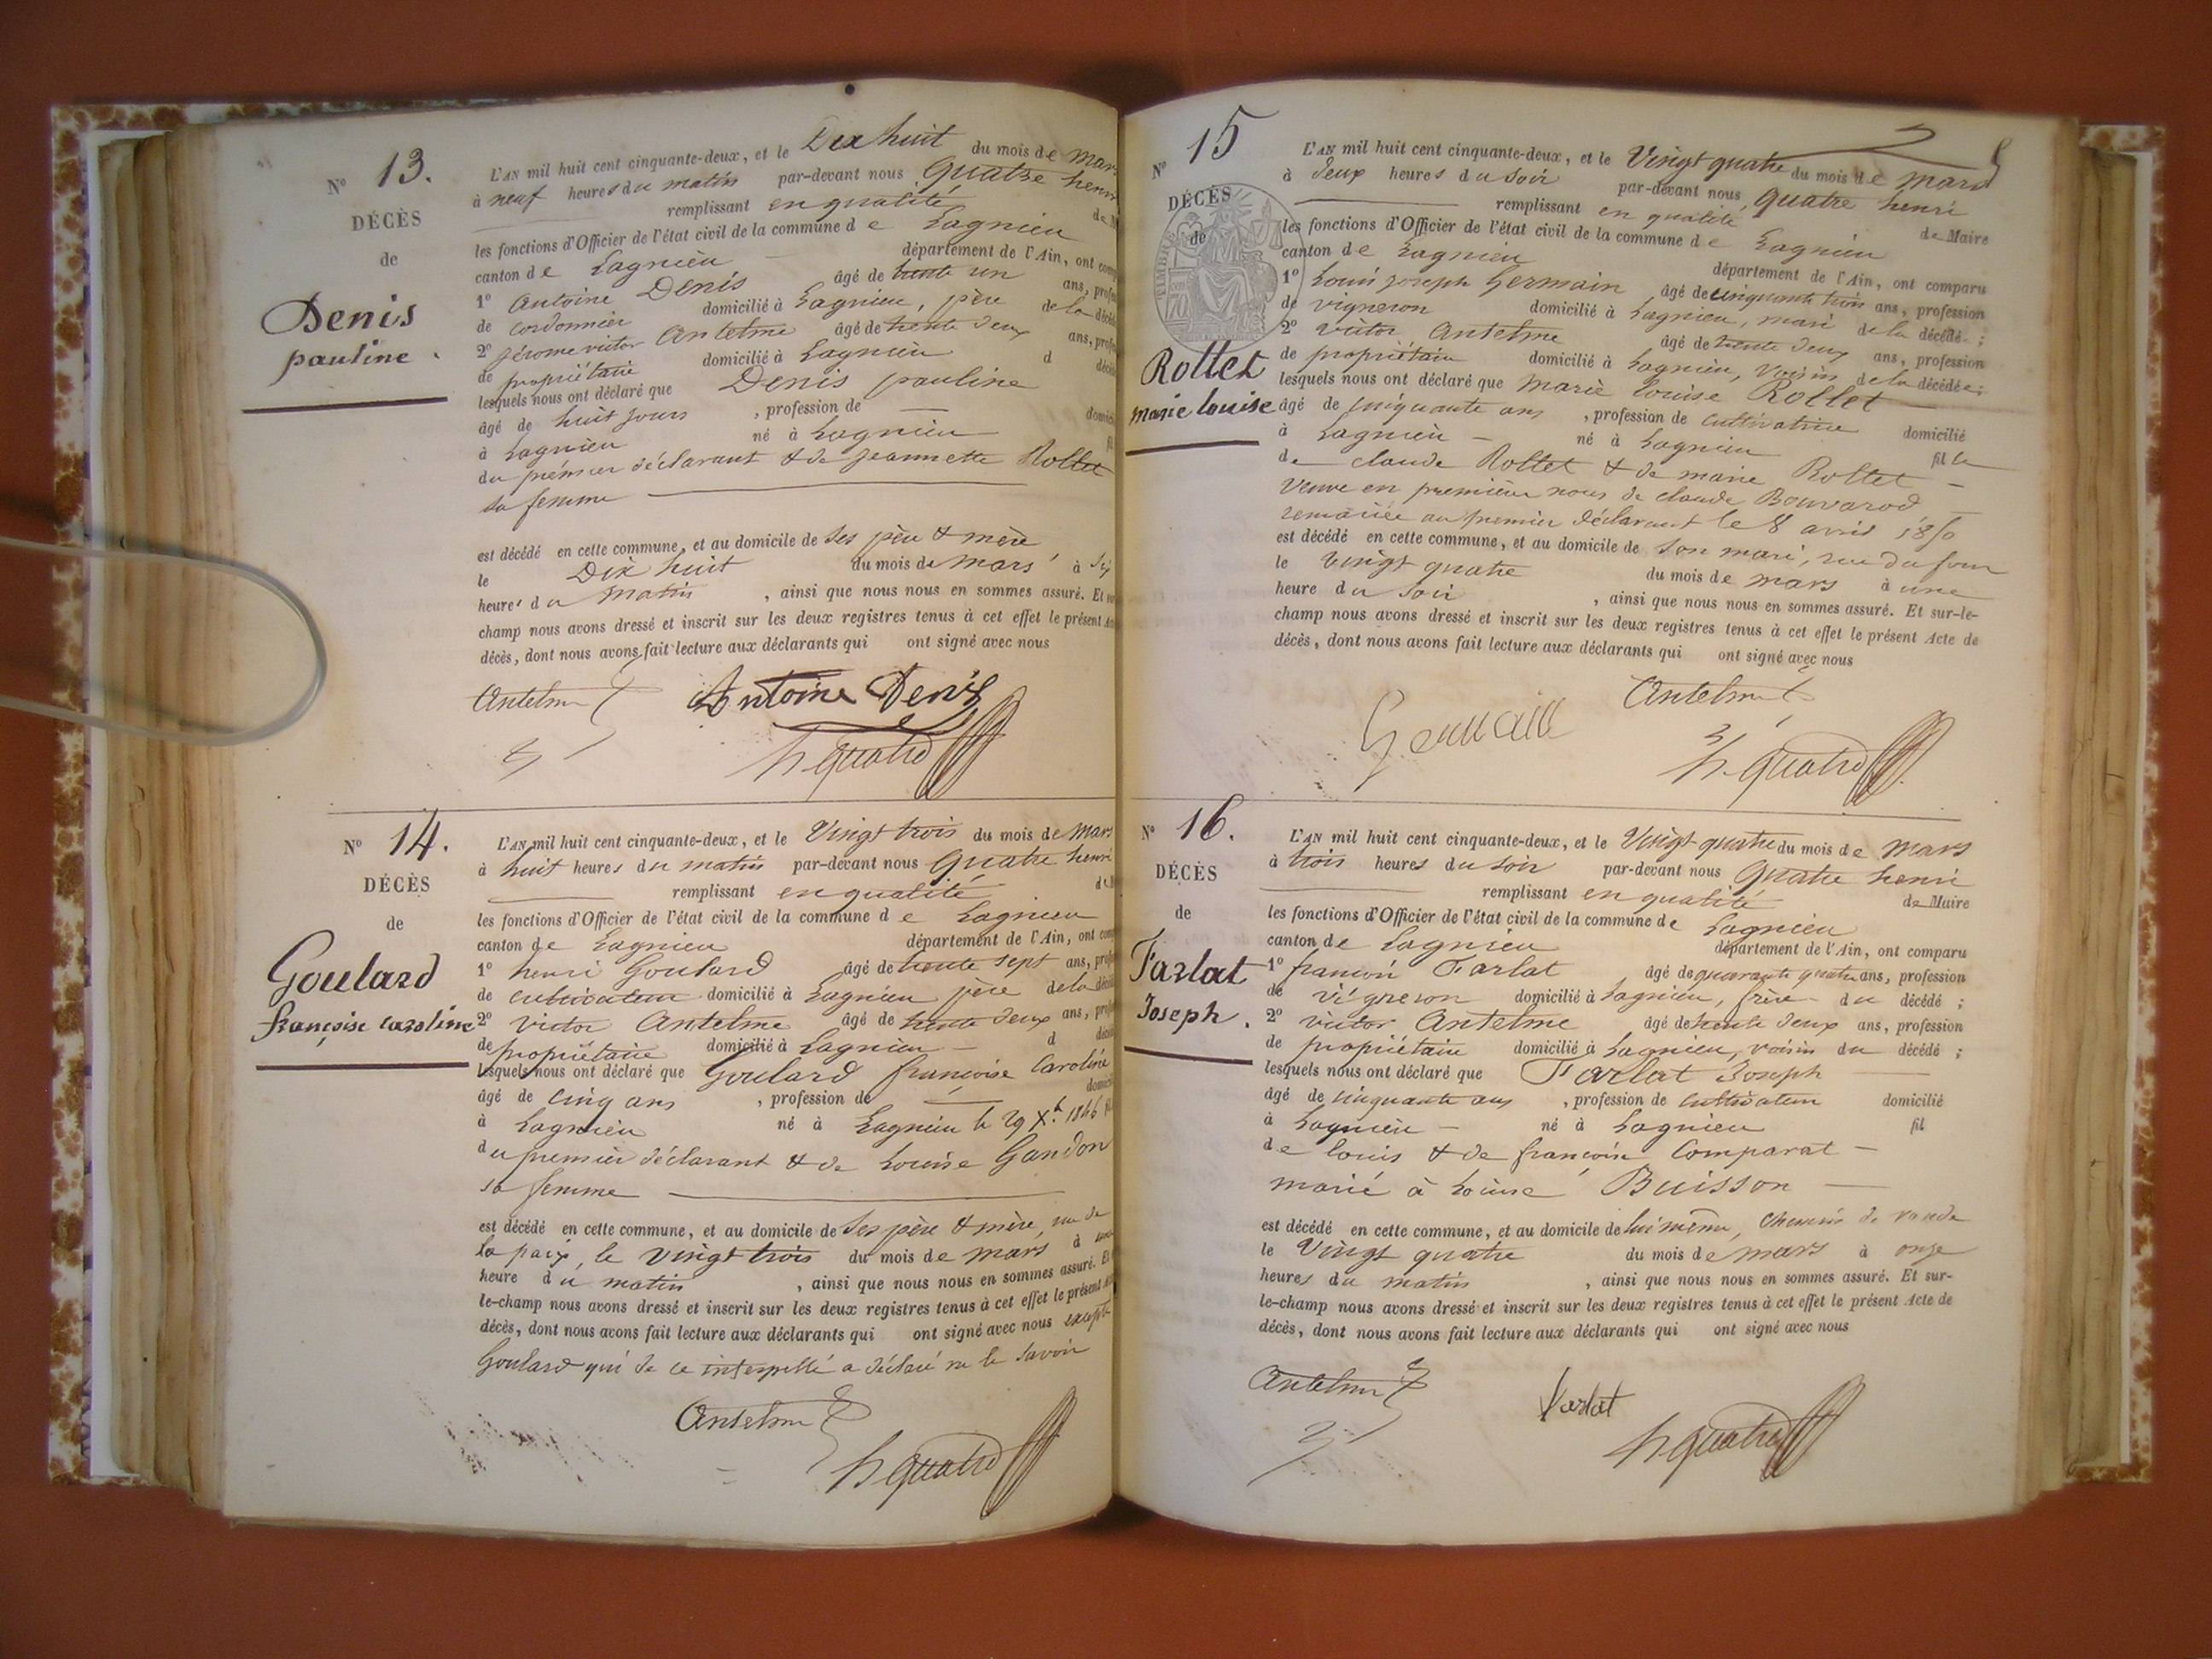 N° 13.
DÉCÈS
de
Denis
pauline.
L'AN mil huit cent cinquante-deux, et le Dix huit du mois de mars
à neuf heures du matin par-devant nous Quatre henri
remplissant en qualité de M
les fonctions d'Officier de l'état civil de la commune de Lagnieu
canton de Lagnieu département de l'Ain, ont comp
1° Antoine Denis âgé de trente un ans, profes
de cordonnier domicilié à Lagnieu, père de la décéd
2° jérome victor Antelme âgé de trente deux ans, profes
de propriétaire domicilié à Lagnieu d décéd
lesquels nous ont déclaré que Denis pauline
âgé de huit jours, profession de — domici
à Lagnieu né à Lagnieu fil
du premier déclarant & de jeannette Rollet
sa femme
est décédé en cette commune, et au domicile de ses père & mère
le Dix huit du mois de mars à six
heures du matin, ainsi que nous nous en sommes assuré. Et sur
champ nous avons dressé et inscrit sur les deux registres tenus à cet effet le présent Ac
décès, dont nous avons fait lecture aux déclarants qui ont signé avec nous
Antelme Antoine Denis
h quatre
N° 14.
DÉCÈS
de
Goulard
françoise caroline
L'AN mil huit cent cinquante-deux, et le Vingt trois du mois de mars
à huit heures du matin par-devant nous Quatre henri
remplissant en qualité de M
les fonctions d'Officier de l'état civil de la commune de Lagnieu
canton de Lagnieu département de l'Ain, ont comp
1° henri Goulard âgé de trente sept ans, profes
de cultivateur domicilié à Lagnieu père de la décéd
2° victor Antelme âgé de trente deux ans, profes
de propriétaire domicilié à Lagnieu — d décéd
lesquels nous ont déclaré que Goulard françoise Caroline
âgé de cinq ans, profession de — domici
à Lagnieu né à Lagnieu le 29 Xbre 1846 fil
du premier déclarant & de Louise Gandon
sa femme
est décédé en cette commune, et au domicile de ses père & mère, rue de
la paix, le vingt trois du mois de mars à une
heure du matin, ainsi que nous nous en sommes assuré. Et
le-champ nous avons dressé et inscrit sur les deux registres tenus à cet effet le présent
décès, dont nous avons fait lecture aux déclarants qui ont signé avec nous excepté
Goulard qui de ce interpellé a déclaré ne le savoir
Antelme
h quatre
N° 15
DÉCÈS
de
Rollet
marie louise
L'AN mil huit cent cinquante-deux, et le Vingt quatre du mois de mars
à deux heures du soir par-devant nous Quatre henri
remplissant en qualité de Maire
les fonctions d'Officier de l'état civil de la commune de Lagnieu
canton de Lagnieu département de l'Ain, ont comparu
1° Louis joseph Germain âgé de cinquante trois ans, profession
de vigneron domicilié à Lagnieu, mari de la décédé ;
2° victor Antelme âgé de trente deux ans, profession
de propriétaire domicilié à Lagnieu, voisin de la décédée ;
lesquels nous ont déclaré que marie louise Rollet
âgé de cinquante ans, profession de cultivatrice domicilié
à Lagnieu — né à Lagnieu fille
de claude Rollet & de marie Rollet —
veuve en première nous de claude Bouvarod
remariée au premier déclarant le 8 avril 1850
est décédé en cette commune, et au domicile de son mari, rue du four
le vingt quatre du mois de mars à une
heure du soir, ainsi que nous nous en sommes assuré. Et sur-le-
champ nous avons dressé et inscrit sur les deux registres tenus à cet effet le présent Acte de
décès, dont nous avons fait lecture aux déclarants qui ont signé avec nous
Germain Antelme
h. quatre
N° 16.
DÉCÈS
de
Farlat
Joseph.
L'AN mil huit cent cinquante-deux, et le Vingt quatre du mois de mars
à trois heures du soir par-devant nous Quatre henri
remplissant en qualité de Maire
les fonctions d'Officier de l'état civil de la commune de Lagnieu
canton de Lagnieu département de l'Ain, ont comparu
1° françois Farlat âgé de quarante quatre ans, profession
de vigneron domicilié à Lagnieu, frère du décédé ;
2° victor Antelme âgé de trente deux ans, profession
de propriétaire domicilié à Lagnieu, voisin du décédé ;
lesquels nous ont déclaré que Farlat Joseph
âgé de cinquante ans, profession de cultivateur domicilié
à Lagnieu — né à Lagnieu fil
de louis & de françoise Comparat —
marié à Louise Buisson —
est décédé en cette commune, et au domicile de lui même, chemin de ronde
le Vingt quatre du mois de mars à onze
heures du matin, ainsi que nous nous en sommes assuré. Et sur-
le-champ nous avons dressé et inscrit sur les deux registres tenus à cet effet le présent Acte de
décès, dont nous avons fait lecture aux déclarants qui ont signé avec nous
Antelme farlat
h quatre